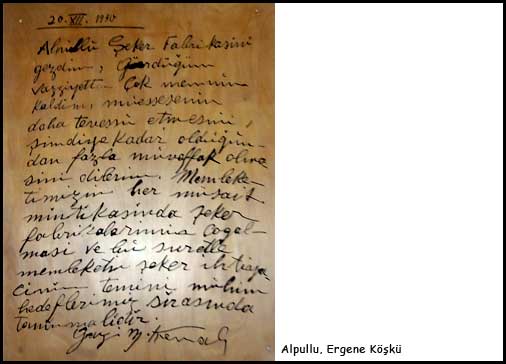 20. XII. 1930
Alpullu Şeker Fabrikasını
gezdim, Gördüğüm
vazziyetten Çok memnun
kaldım, müessesenin
daha tevessü etmesini,
şimdiye kadar olduğun-
dan fazla muvaffak olma
sını dilerim. Memleke
timizin her müsait
mıntıkasında şeker
fabrikalarının çoğal-
ması ve bu suretle
memleketin şeker ihtiya
cının temini mühim
hedeflerimiz sırasında
tanınmalıdır.
Gazi M. Kemal
Alpullu, Ergene Köşkü